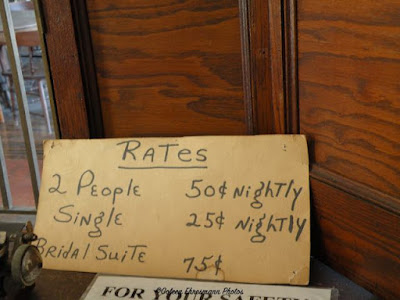 RATES
2 PEOPLE 50¢ NIGHTLY
SINGLE 25¢ NIGHTLY
BRIDAL SUITE 75¢
FOR YOUR SAFETY